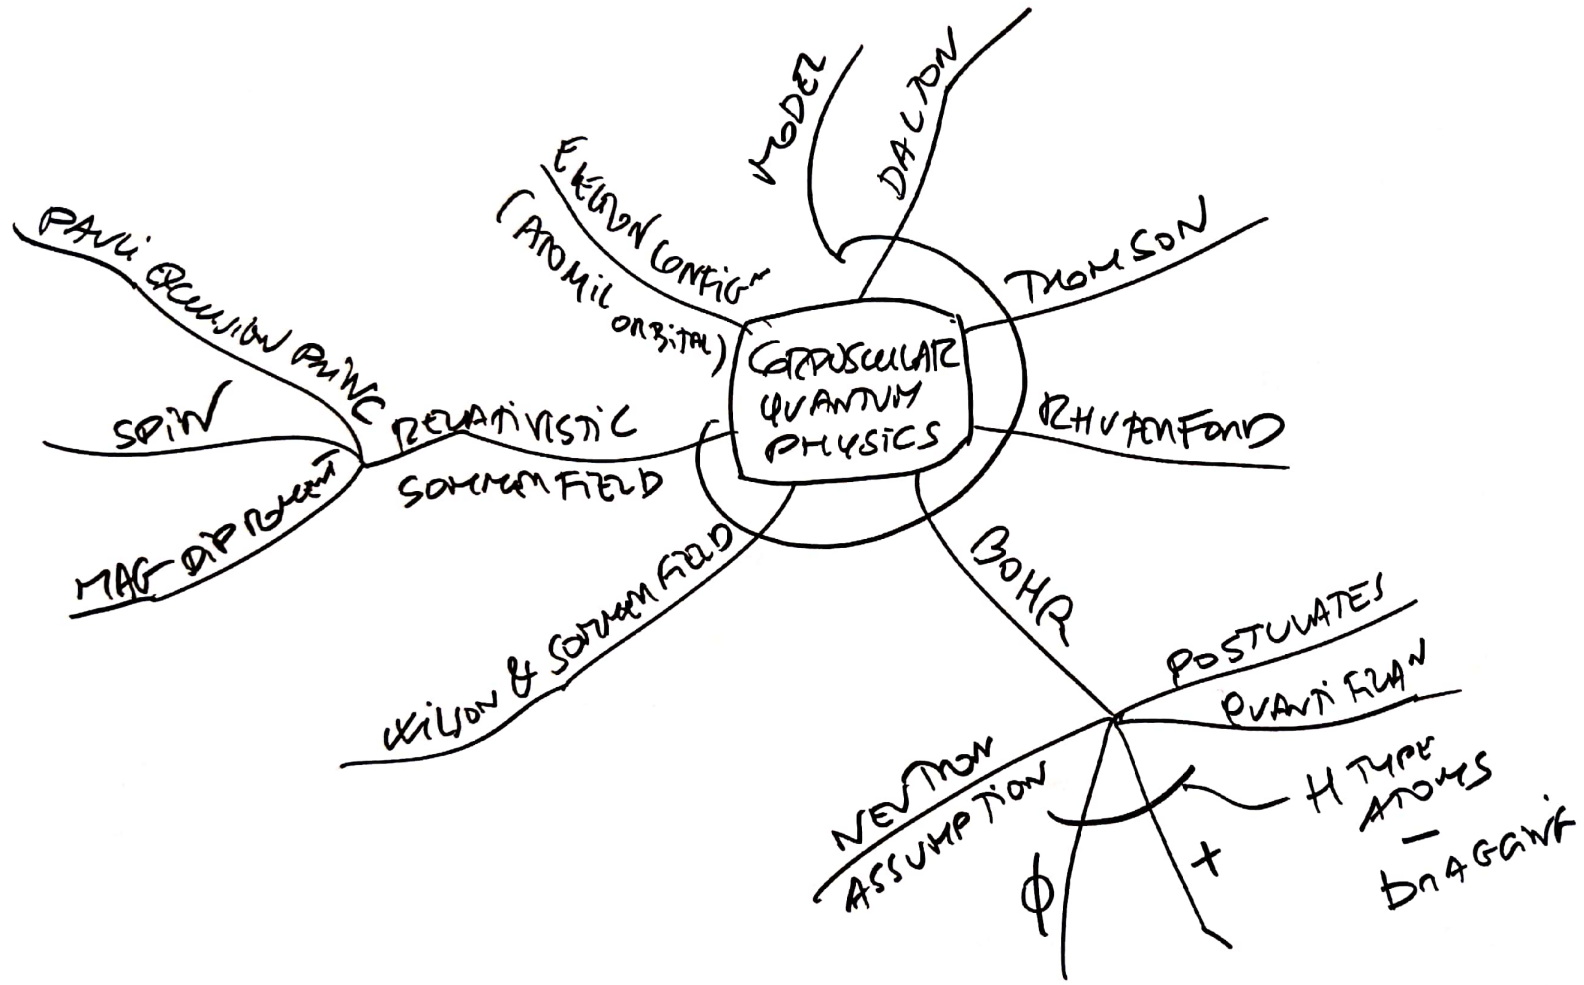 CORPUSCULAR
QUANTUM
PHYSICS
MODEL
DALTON
THOMSON
RHUTERFORD
BOHR
POSTULATES
QUANTIFICAN
H TYPE
ATOMS
–
DRAGGING
+
ϕ
NEUTRON
ASSUMPTION
WILSON & SOMMERFIELD
RELATIVISTIC
SOMMERFIELD
PAULI EXCLUSION PRINC
SPIN
MAG DIP MOMENT
CONFIGN
(ATOMIC
ORBITAL)